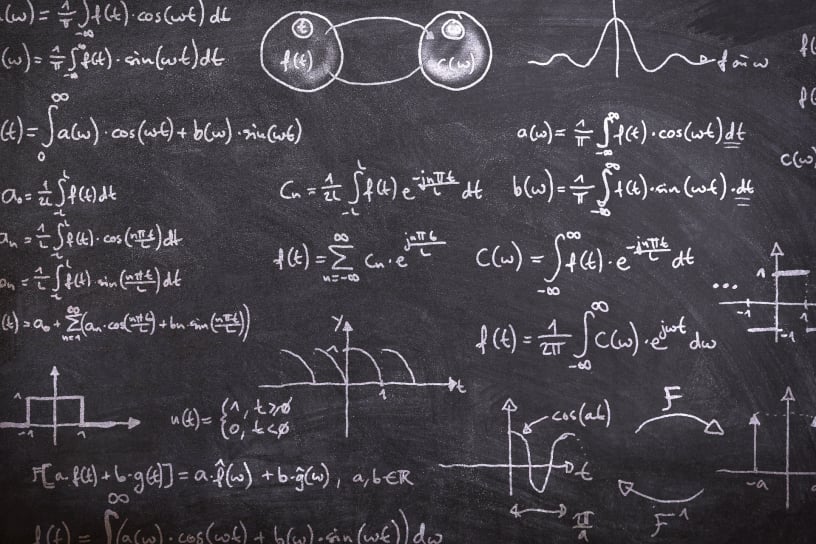 (ω) = 1/π ∫_{-∞} f(t)·cos(ωt) dt
(ω) = 1/π ∫_{-∞}^{∞} f(t)·sin(ωt) dt
t
f(t)
ω
C(ω)
f ω
(t) = ∫_0^∞ a(ω)·cos(ωt) + b(ω)·sin(ωt)
a(ω) = 1/π ∫_{-∞}^{∞} f(t)·cos(ωt) dt
C(ω)
a₀ = 1/2L ∫_{-L}^{L} f(t) dt
Cₙ = 1/2L ∫_{-L}^{L} f(t) e^{-jnπt/L} dt
b(ω) = 1/π ∫_{-∞}^{∞} f(t)·sin(ωt)·dt
aₙ = 1/L ∫_{-L}^{L} f(t)·cos(nπt/L) dt
aₙ = 1/L ∫_{-L}^{L} f(t)·sin(nπt/L) dt
f(t) = Σ_{n=-∞}^{∞} Cₙ·e^{jnπt/L}
C(ω) = ∫_{-∞}^{∞} f(t)·e^{-jnπt/L} dt
... 1 -1 -1
(t) = a₀ + Σ_{n=1}^{∞} (aₙ·cos(nπt/L) + bₙ·sin(nπt/L))
f(t) = 1/2π ∫_{-∞}^{∞} C(ω)·e^{jωt} dω
y
1
t
1
1
-1 1
u(t) = {1, t≥0
{0, t<0
cos(at)
t
π/a
F
F⁻¹
-a
F[a·f(t) + b·g(t)] = a·f̂(ω) + b·ĝ(ω), a,b∈ℝ
f(t) = ∫^∞ (a(ω)·cos(ωt) + b(ω)·sin(ωt)) dω